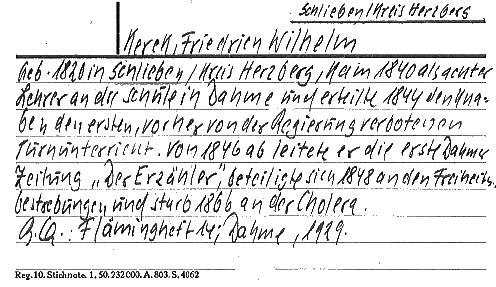 Schlieben/Kreis Herzberg,
Kerck, Friedrich Wilhelm
geb. 1820 in Schlieben/Kreis Herzberg, kam 1840 als achter
Lehrer an der Schule in Dahme und erteilte 1844 den Kna-
ben den ersten, vorher von der Regierung verbotenen
Turnunterricht. Von 1846 ab leitete er die erste Dahmer
Zeitung „Der Erzähler“, beteiligte sich 1848 an den Freiheits-
bestrebungen und starb 1866 an der Cholera.
Q.Qu.: Fläminghheft 14; Dahme, 1929.
Reg. 10. Stichnote. 1, 50. 232 000. A. 803. S. 4062